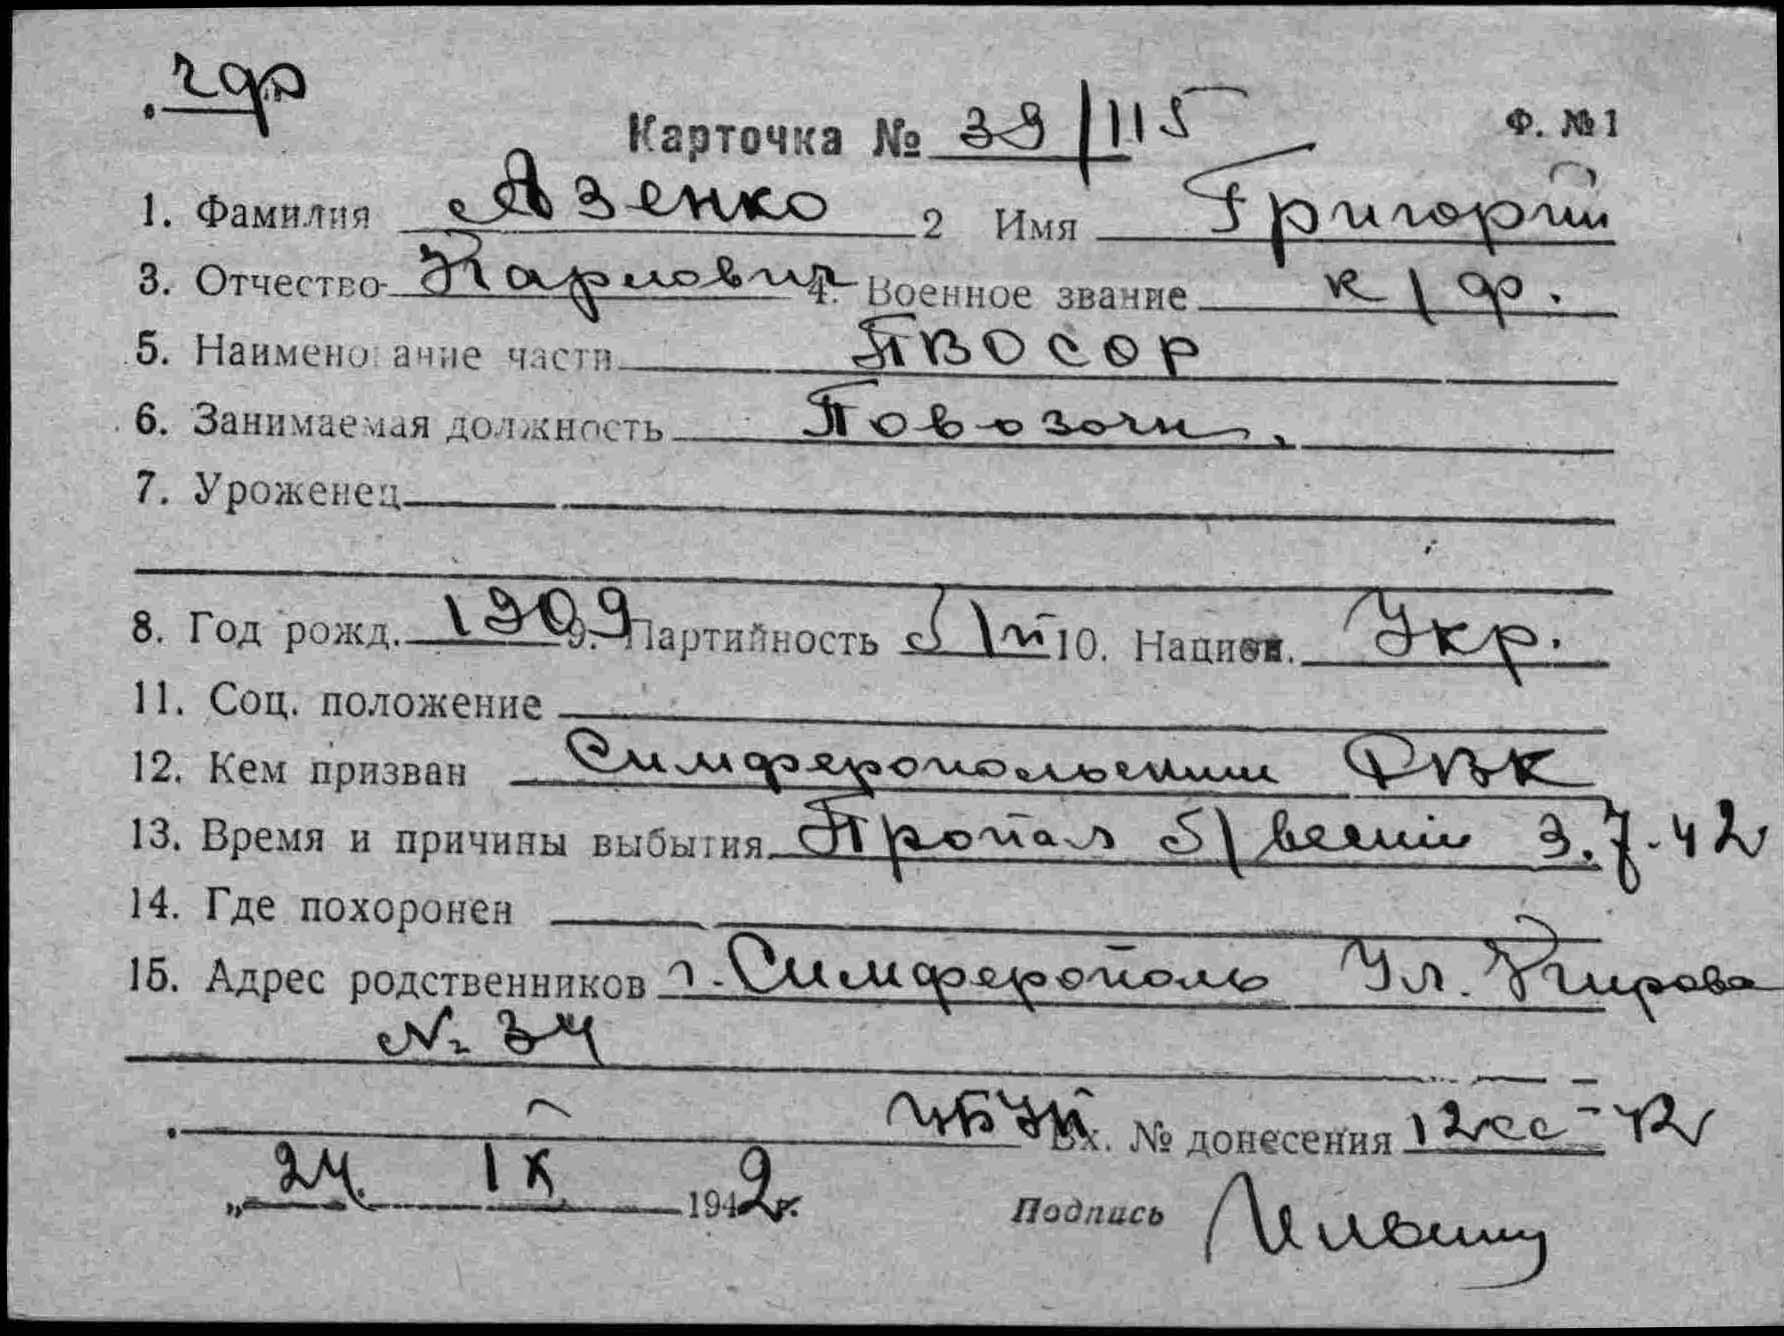 чф
Карточка № 39/115 Ф. №1
1. Фамилия Азенко 2 Имя Григорий
3. Отчество Карлович 4. Военное звание к/ф.
5. Наименование части ПВОСОР
6. Занимаемая должность Повозочн.
7. Уроженец
8. Год рожд. 1909 9. Партийность б/п 10. Национ. Укр.
11. Соц. положение
12. Кем призван Симферопольским РВК
13. Время и причины выбытия Пропал б/вести 3.7.42
14. Где похоронен
15. Адрес родственников г. Симферополь Ул. Кирова
№ 34
Вх. № донесения 12сс-42
„24 IX 1942г.
Подпись